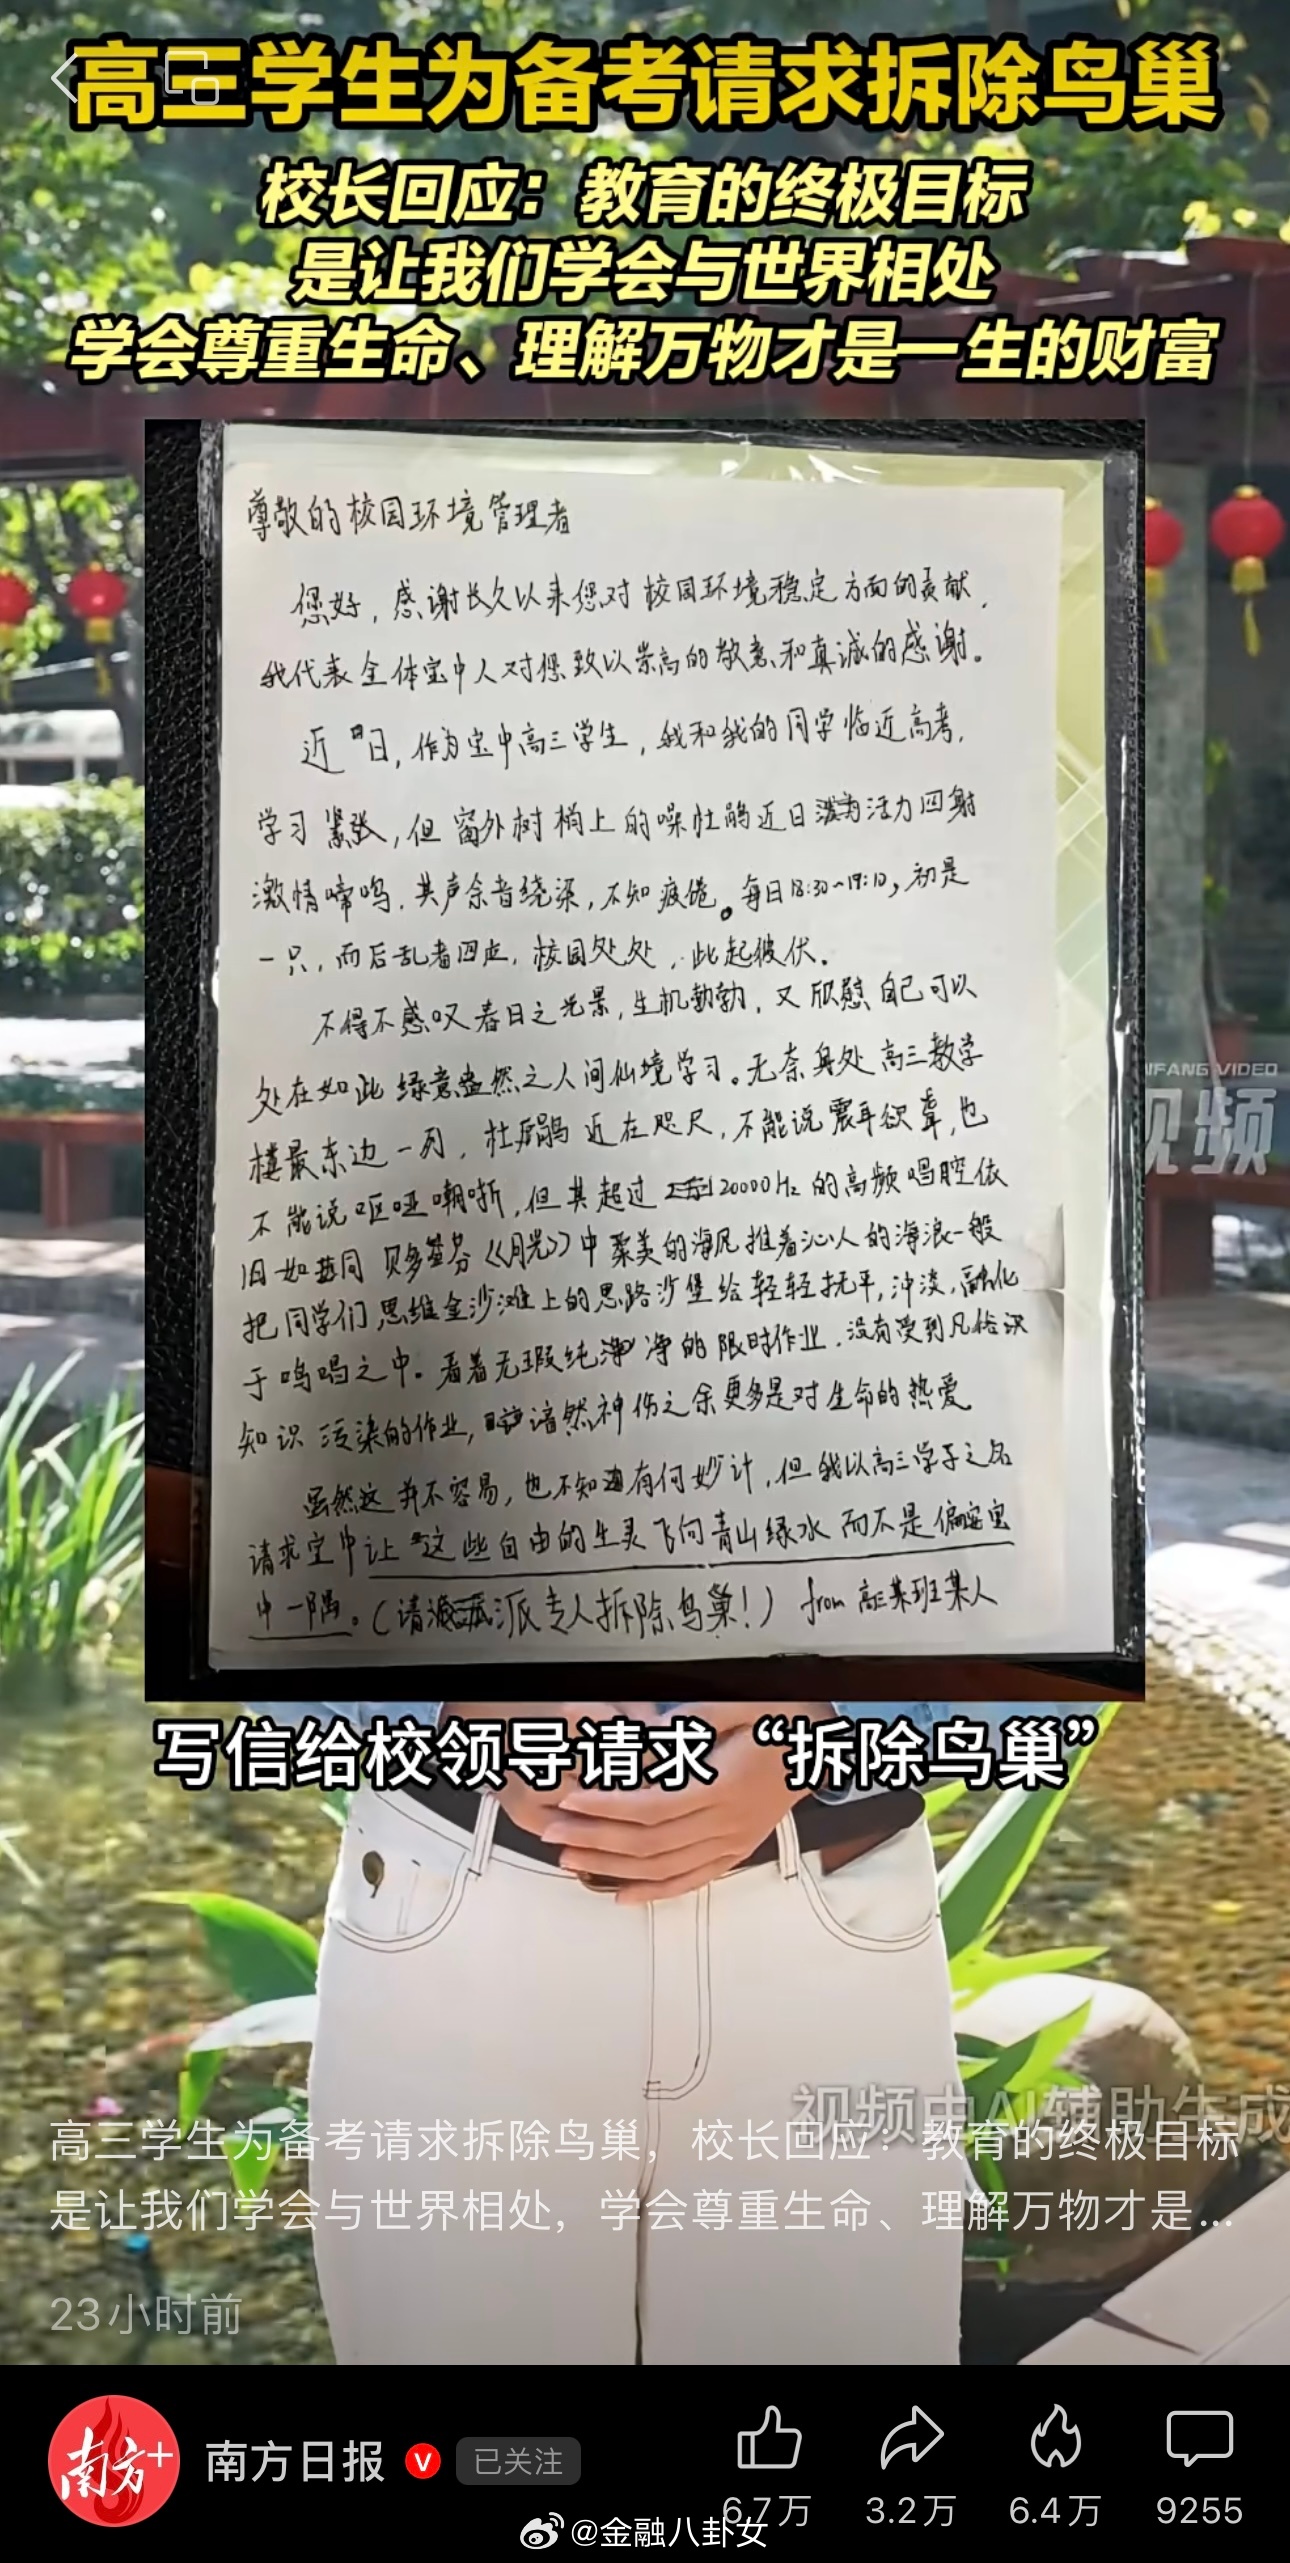 高三学生为备考请求拆除鸟巢
校长回应：教育的终极目标
是让我们学会与世界相处
学会尊重生命、理解万物才是一生的财富
尊敬的校园环境管理者
您好，感谢长久以来您对校园环境稳定方面的贡献，
我代表全体宝中人对您致以崇高的敬意和真诚的感谢。
近日，作为宝中高三学生，我和我的同学临近高考，
学习紧张，但窗外树梢上的噪杜鹃近日活力四射
激情啼鸣，其声余音绕梁，不知疲倦。每日18:30~19:10，初是
一只，而后乱者四应，校园处处，此起彼伏。
不得不感叹春日之光景，生机勃勃，又欣慰自己可以
处在如此绿意盎然之人间仙境学习。无奈身处高三教学
楼最东边一列，杜鹃近在咫尺，不能说震耳欲聋，也
不能说呕哑嘲哳，但其超过20000Hz的高频唱腔依
旧如同贝多芬《月光》中柔美的海风推着沁人的海浪一般
把同学们思维金沙滩上的思路沙堡给轻轻抚平，冲淡，融化
于鸣唱之中。看着无瑕纯净的限时作业，没有受到凡俗
知识污染的作业，黯然神伤之余更多是对生命的热爱
虽然这并不容易，也不知有何妙计，但我以高三学子之名
请求宝中让这些自由的生灵飞向青山绿水而不是偏安宝
中一隅。（请派专人拆除鸟巢！）from 高三某班某人
IFANG VIDEO
视频
写信给校领导请求“拆除鸟巢”
视频由AI辅助生成
高三学生为备考请求拆除鸟巢，校长回应：教育的终极目标
是让我们学会与世界相处，学会尊重生命、理解万物才是...
23小时前
南方+
南方日报
已关注
6.7万
3.2万
6.4万
9255
@金融八卦女